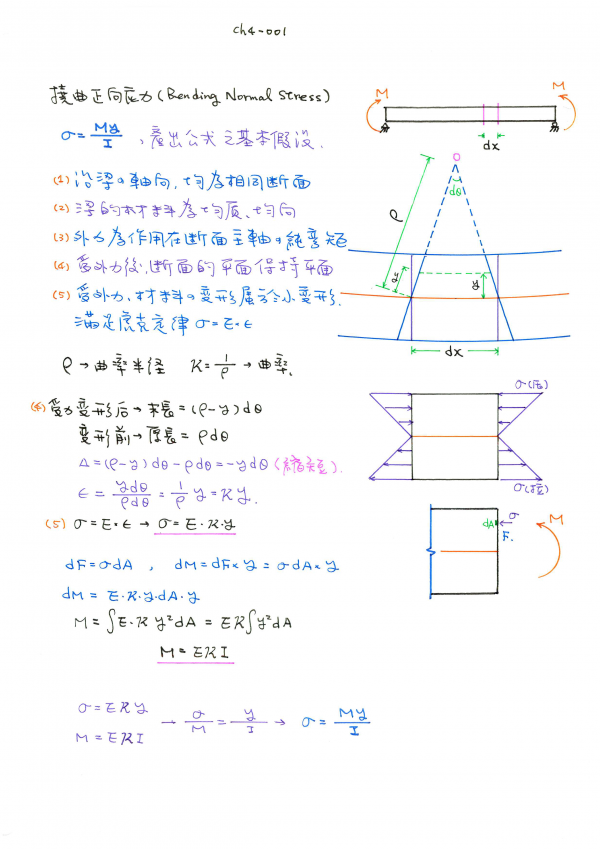 ch4-001
撓曲正向应力 (Bending Normal Stress)
σ = My/I , 產出公式之基本假設.
(1) 沿梁の軸向, 均為相同断面
(2) 梁的材料為均质、均向
(3) 外力為作用在断面主軸の純弯矩
(4) 受外力後, 断面的平面保持平面
(5) 受外力、材料の変形屬於小変形.
滿足虎克定律 σ = E×ε
ρ → 曲率半径 K = 1/ρ → 曲率.
(4) 受力変形后 → 末長 = (ρ-y)dθ
変形前 → 原長 = ρdθ
Δ = (ρ-y)dθ - ρdθ = -ydθ (縮短).
ε = ydθ/ρdθ = 1/ρ y = Ky.
(5) σ = E×ε → σ = E·K·y
dF = σdA , dM = dF×y = σdA×y
dM = E·K·y·dA·y
M = ∫E·K y²dA = EK∫y²dA
M = EKI
σ = EKy
M = EKI
→ σ/M = y/I → σ = My/I
M
M
dx
O
dθ
ρ
y
dx
σ(压)
σ(拉)
dA
σ
F.
M